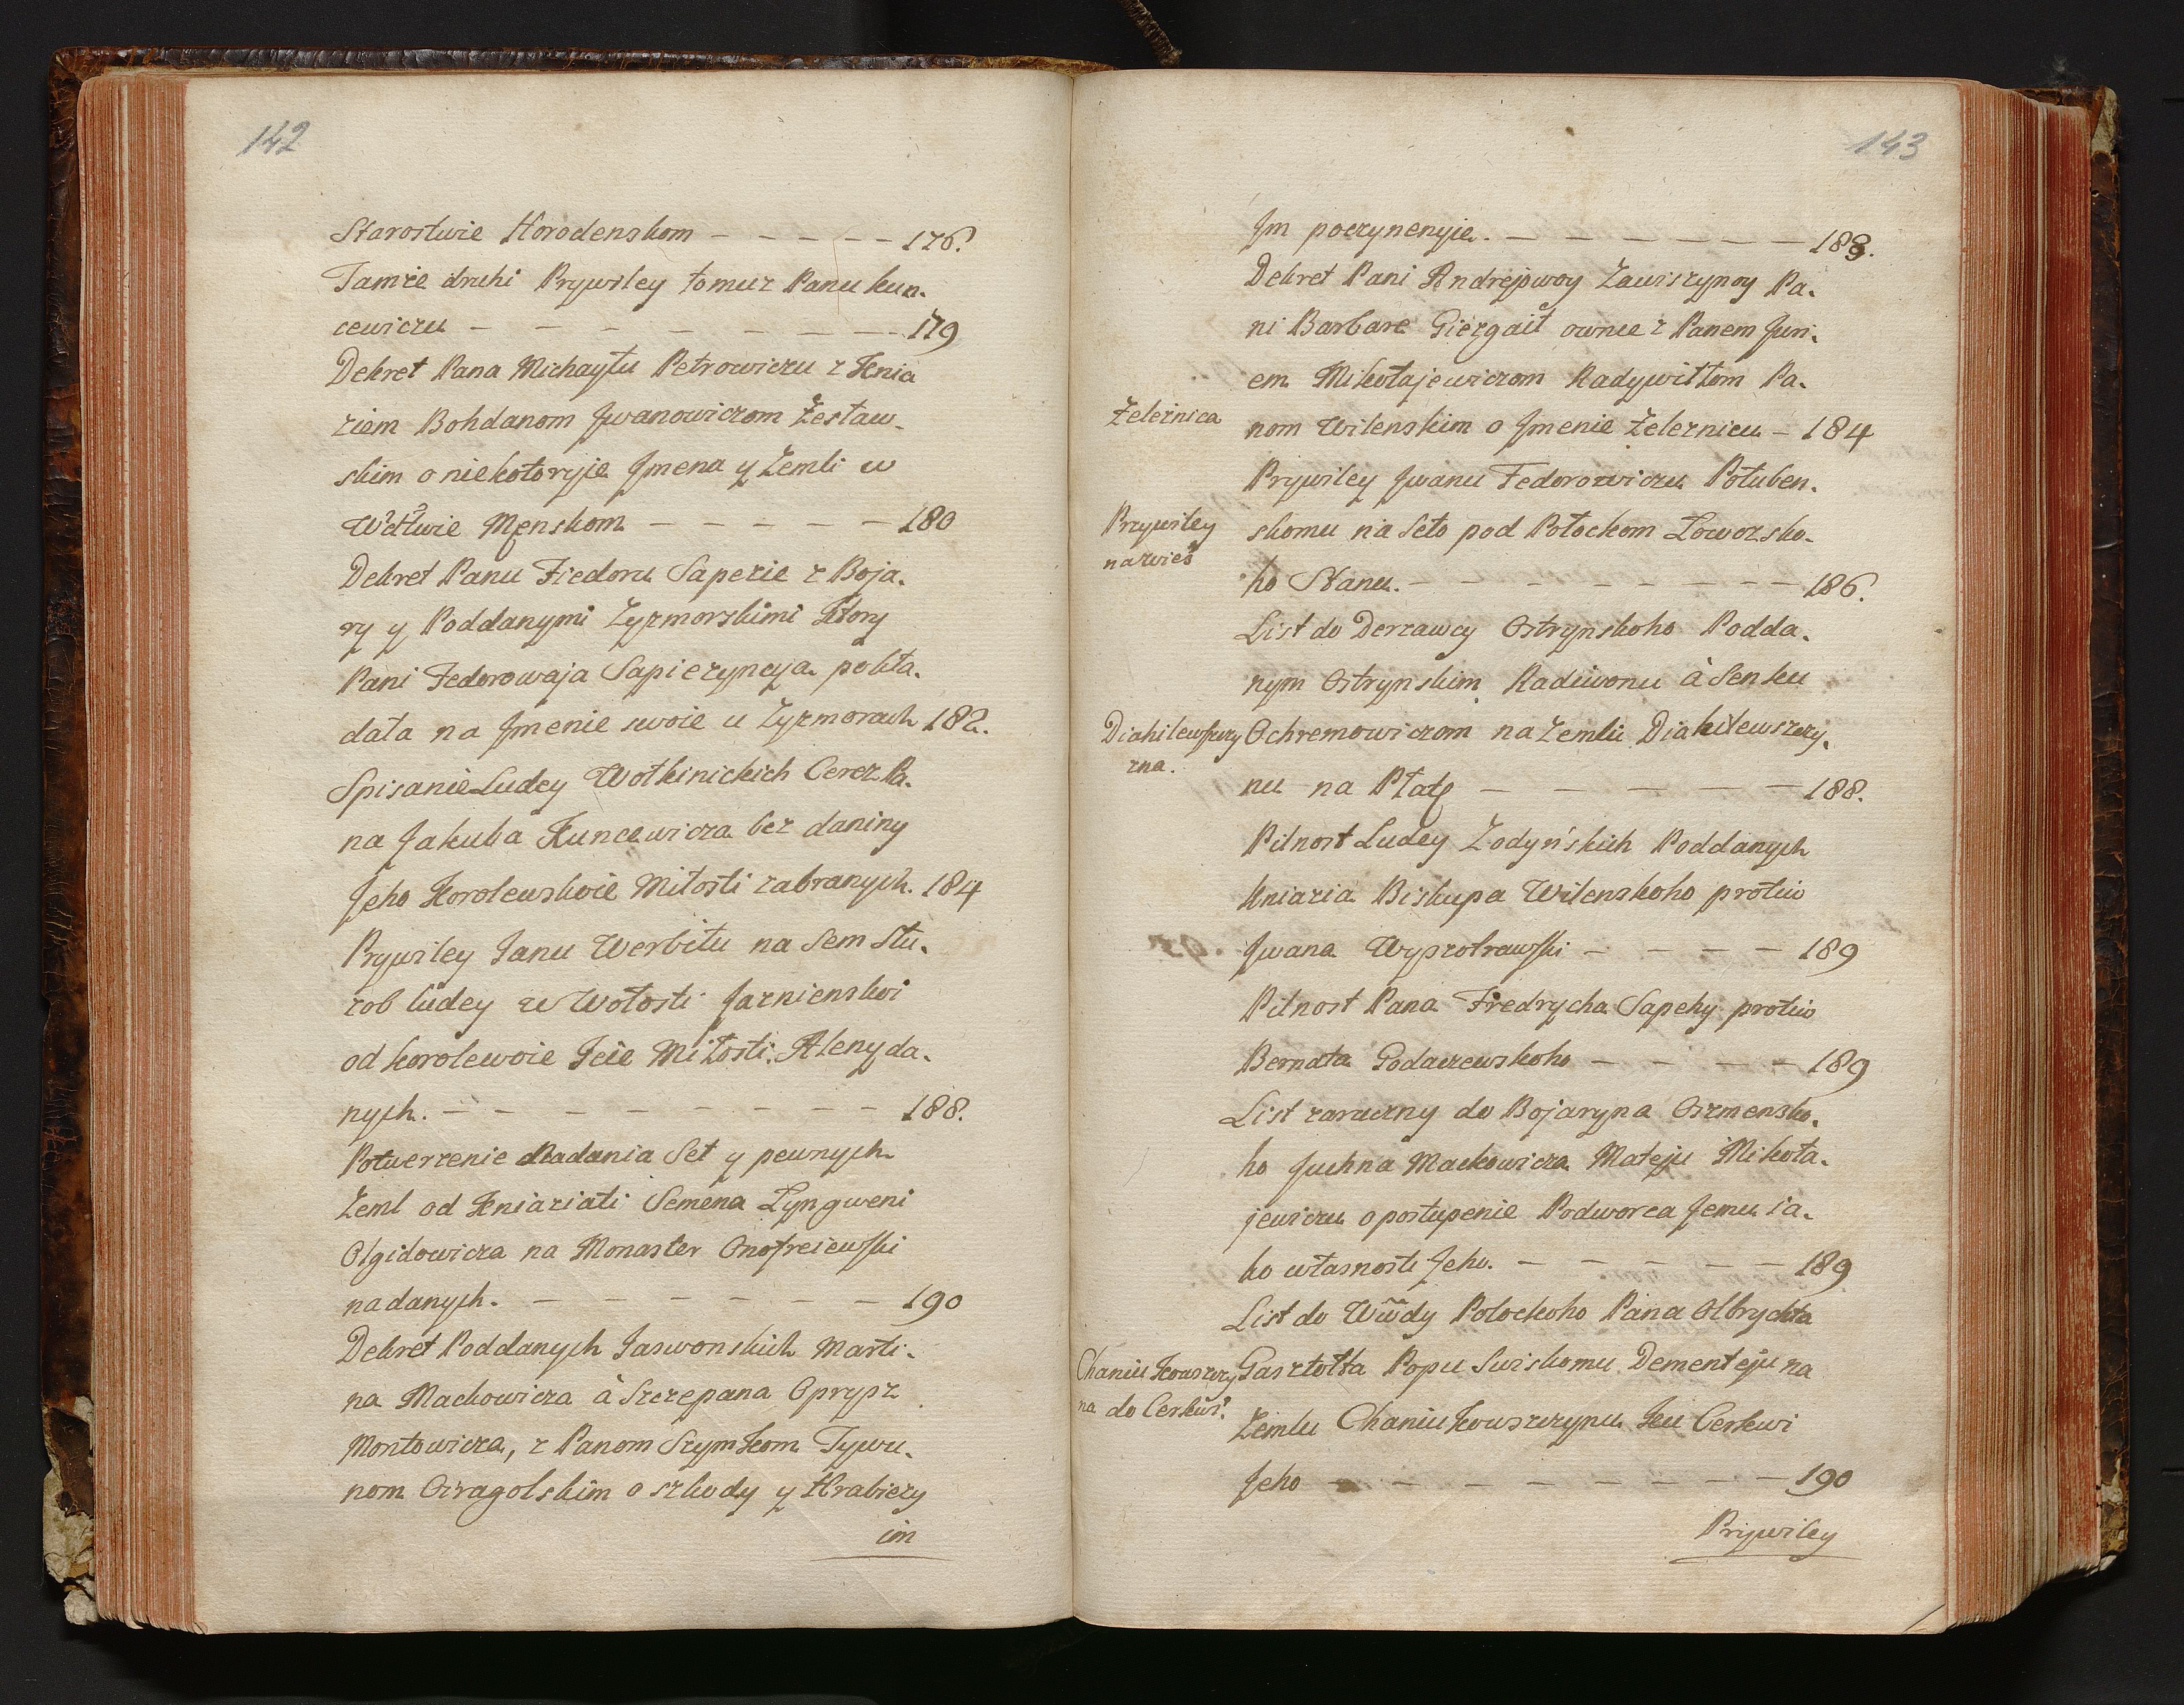 142
Starostwie Horodenskom - - - - - 176.
Tamże druhi Prywiley tomuz Panu kun-
cewiczu - - - - - - - - 179
Dekret Pana Michayłu Petrowiczu z Knia
ziem Bohdanom Jwanowiczom Żesław-
skim o niekotoryje Jmena y Zemli w
Wdztwie Menskom - - - - - 180
Dekret Panu Fiedoru Sapezie z Boja-
ry y Poddanymi Zyzmorskimi Ktory
Pani Fedorowaja Sapiezyncya pokła-
dała na Jmenie swoie u Zyzmorach 182.
Spisanie Ludey Wołkinickich Cerez Pa-
na Jakuba Kuncewicza bez daniny
Jeho Korolewskoie Miłosti zabranych. 184
Prywiley Janu Werbiłu na Sem Słu-
zob ludey w Wołosti Jaznienskoi
od korolewoie Jeie Miłosti Aleny da-
nych. - - - - - - - - 188.
Potwerzenie Nadania Seł y pewnych
Zeml od Kniaziati Semena Lyngweni
Olgidowicza na Monaster Onofreiewski
nadanych. - - - - - - - 190
Dekret Poddanych Jaswonskich Marti-
na Mackowicza à Szczepana Oprypz
Montowicza, z Panom Szymkom Tywu-
nom Oiragolskim o szkody y Hrabiezy
im
143
Jm poczynenyje. - - - - - - - 183.
Dekret Pani Andrejowoy Zawiszynoy Pa-
ni Barbare Giezgaił ownie z Panem Juri-
em Mikołajewiczom Radywiłłom Pa-
Żeleźnica
nom Wilenskim o Jmenie Żeleznicu - 184
Prywiley Jwanu Fedorowiczu Połuben-
Przywiley
na wieś
skomu na Seło pod Połockom Łoworsko-
ho Stanu. - - - - - - - - 186.
List do Derzawcy Ostrynskoho Podda-
nym Ostrynskim Radiwonu à Senku
Diahilewszczy
zna.
Ochremowiczom na Zemlu Diahilewszczy-
nu na Płatę - - - - - - 188.
Pilnost Ludey Zodyńskich Poddanych
Kniazia Biskupa Wilenskoho protiw
Jwana Wyprotrawski - - - - 189
Pilnost Pana Fredrycha Sapehy protiw
Bernata Godaczewskoho - - - - 189
List zaruczny do Bojaryna Oszmensko-
ho Juchna Mackowicza Mateju Mikoła-
jewiczu o postupenie Podworca Jemu ia-
ko własnosti Jeho. - - - - - 189
List do Wwdy Połockoho Pana Olbrychta
Chaniu kowszczy
na do Cerkwi.
Gasztołta Popu Swiskomu Dementeju na
Zemlu Chaniukowszczynu Ku Cerkwi
Jeho - - - - - - - - 190
Prywiley